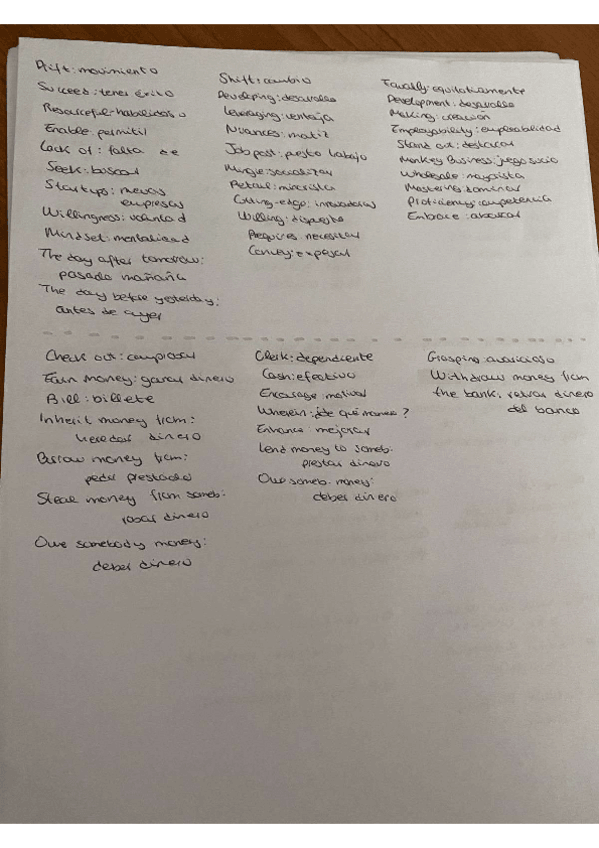 Drift: movimiento
Succeed: tener éxito
Resourceful: habilidoso
Enable: permitir
Lack of: falta de
Seek: buscar
Startups: nuevas
empresas
Willingness: voluntad
Mindset: mentalidad
The day after tomorrow:
pasado mañana
The day before yesterday:
antes de ayer
Shift: cambio
Developing: desarrollo
Leveraging: ventaja
Nuances: matiz
Job post: puesto trabajo
Mingle: socializar
Retail: minorista
Cutting-edge: innovadoras
Willing: dispuesto
Requires: necesitar
Convey: expresar
Equally: equitativamente
Development: desarrollo
Making: creación
Employability: empleabilidad
Stand out: destacar
Monkey Business: juego sucio
Wholesale: mayorista
Mastering: dominar
Proficiency: competencia
Embrace: abrazar
Check out: comprobar
Earn money: ganar dinero
Bill: billete
Inherit money from:
heredar dinero
Borrow money from:
pedir prestado
Steal money from someb:
robar dinero
Owe somebody money:
deber dinero
Clerk: dependiente
Cash: efectivo
Encourage: motivar
Wherein: ¿de qué manera?
Enhance: mejorar
Lend money to someb.
prestar dinero
Owe someb. money:
deber dinero
Grasping avaricioso
Withdraw money from
the bank: retirar dinero
del banco